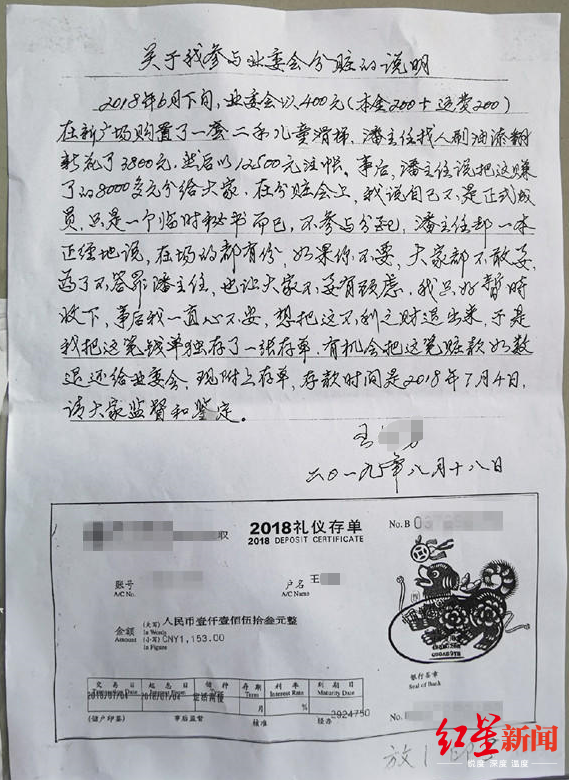 关于我参与业委会分赃的说明
2018年6月下旬,业委会以400元(本金200+运费200)
在新广场购置了一套二手儿童滑梯,潘主任找人刷油漆翻
新花了3800元,然后以12500元注帐。事后,潘主任说把这赚
了的8000多元分给大家。在分赃会上,我说自己不是正式成
员,只是一个临时秘书而已,不参与分配,潘主任却一本
正经地说,在场的都有份,如果你不要,大家都不敢要,
为了不答罪潘主任,也让大家不要有顾虑,我只好暂时
收下,事后我一直心不安,想把这不利之财退出来,于是
我把这笔钱单独存了一张存单,有机会把这笔赃款如数
退还给业委会,现附上存单,存款时间是2018年7月4日,
请大家监督和鉴定。
王
二〇一九年八月十八日
取
2018礼仪存单
2018 DEPOSIT CERTIFICATE
No.B
账号
A/C No.
户名 王
A/C Name
金额 (大写) 人民币壹仟壹佰伍拾叁元整
Amount In Words
(小写) CNY1,153.00
In Figure
银行签章
Seal of Bank
交易日 起息日 储种 存期 利率 到期日
Term Interest Rate Maturity Date
2018/07/04 2018/07/04
月 %
(储户印鉴) 事后监督 核准 经办 3924750
No.B
红星新闻
锐度 深度 温度